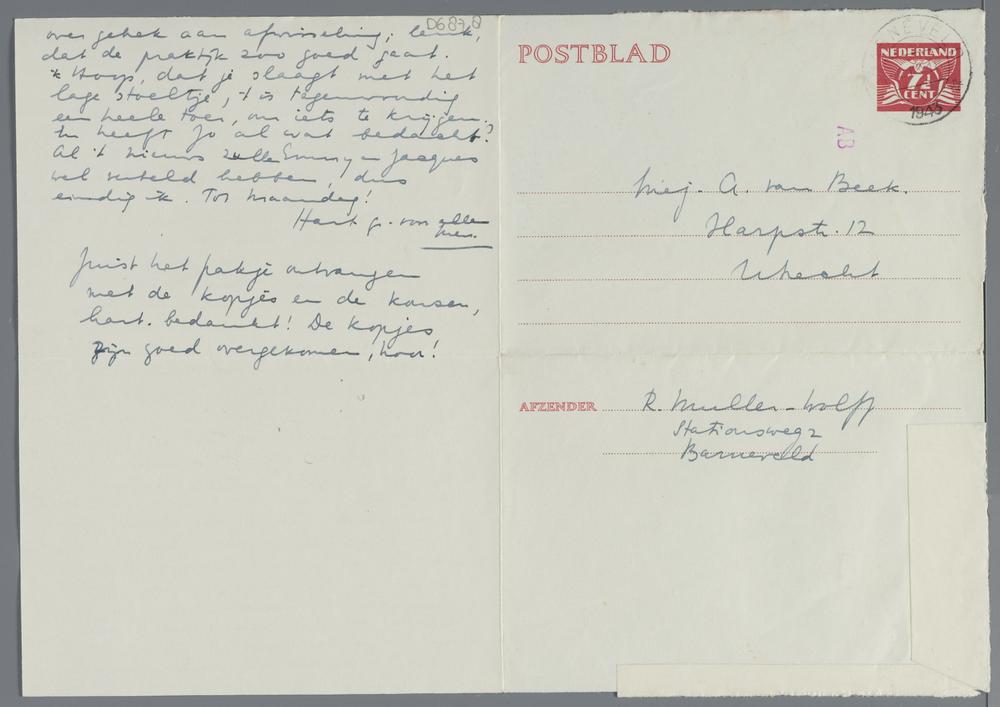 D6878
over gebrek aan afwisseling; leuk,
dat de praktijk zoo goed gaat.
Hoop, dat je slaagt met het
lage stoeltje, 't is tegenwoordig
een heele toer, om iets te krijgen.
En heeft Jo al wat bedacht?
Al 't nieuws zullen Emmy en Jacques
wel verteld hebben, dus
eindig ik. Tot Maandag!
Hart. gr. van allen
Juist het pakje ontvangen
met de kopjes en de kousen,
hart. bedankt! De kopjes
zijn goed overgekomen, hoor!
POSTBLAD
NEDERLAND
7½
CENT
1943
AB
Mej. A. van Beek.
Harpstr. 12
Utrecht
AFZENDER R. Muller-Wolff
Stationsweg 2
Barneveld